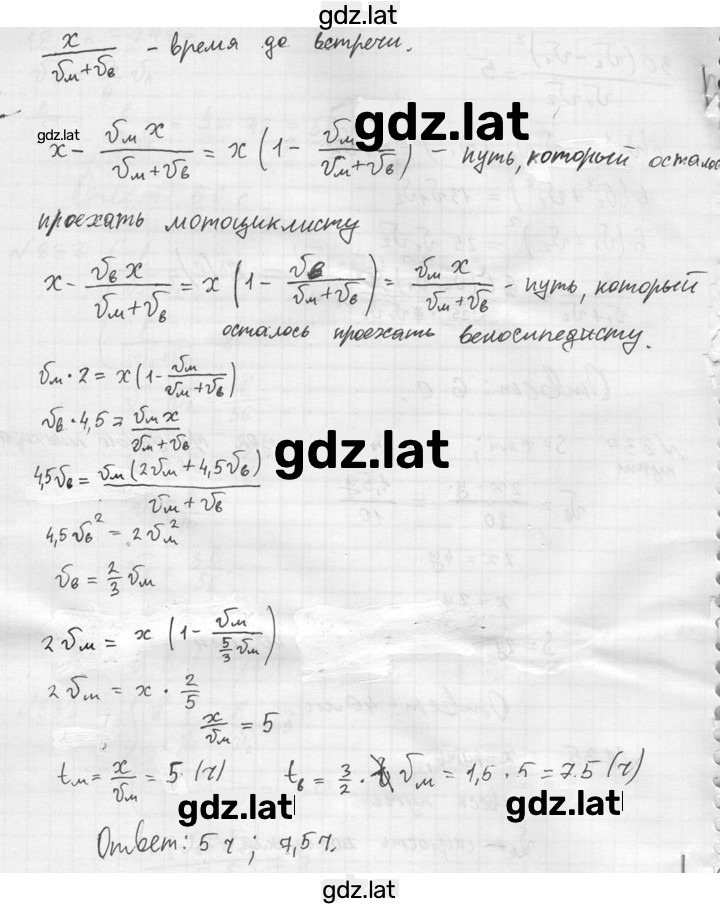 gdz.lat
x/(υм+υв) - время до встречи.
gdz.lat
gdz.lat
x - υм x/(υм+υв) = x (1 - υм/(υм+υв)) - путь, который
проехать мотоциклисту
x - υв x/(υм+υв) = x (1 - υв/(υм+υв)) = υм x/(υм+υв) - путь, который
осталось проехать велосипедисту.
υм · 2 = x (1 - υм/(υм+υв))
υв · 4,5 = υм x/(υм+υв)
gdz.lat
4,5υв = υм (2υм + 4,5υв)/(υм + υв)
4,5υв² = 2υм²
υв = 2/3 υм
2υм = x (1 - υм/(5/3 υм))
2υм = x · 2/5
x/υм = 5
tм = x/υм = 5 (ч) tв = 3/2 · υм = 1,5 · 5 = 7.5 (ч)
gdz.lat gdz.lat
Ответ: 5 ч ; 7,5 ч.
gdz.lat